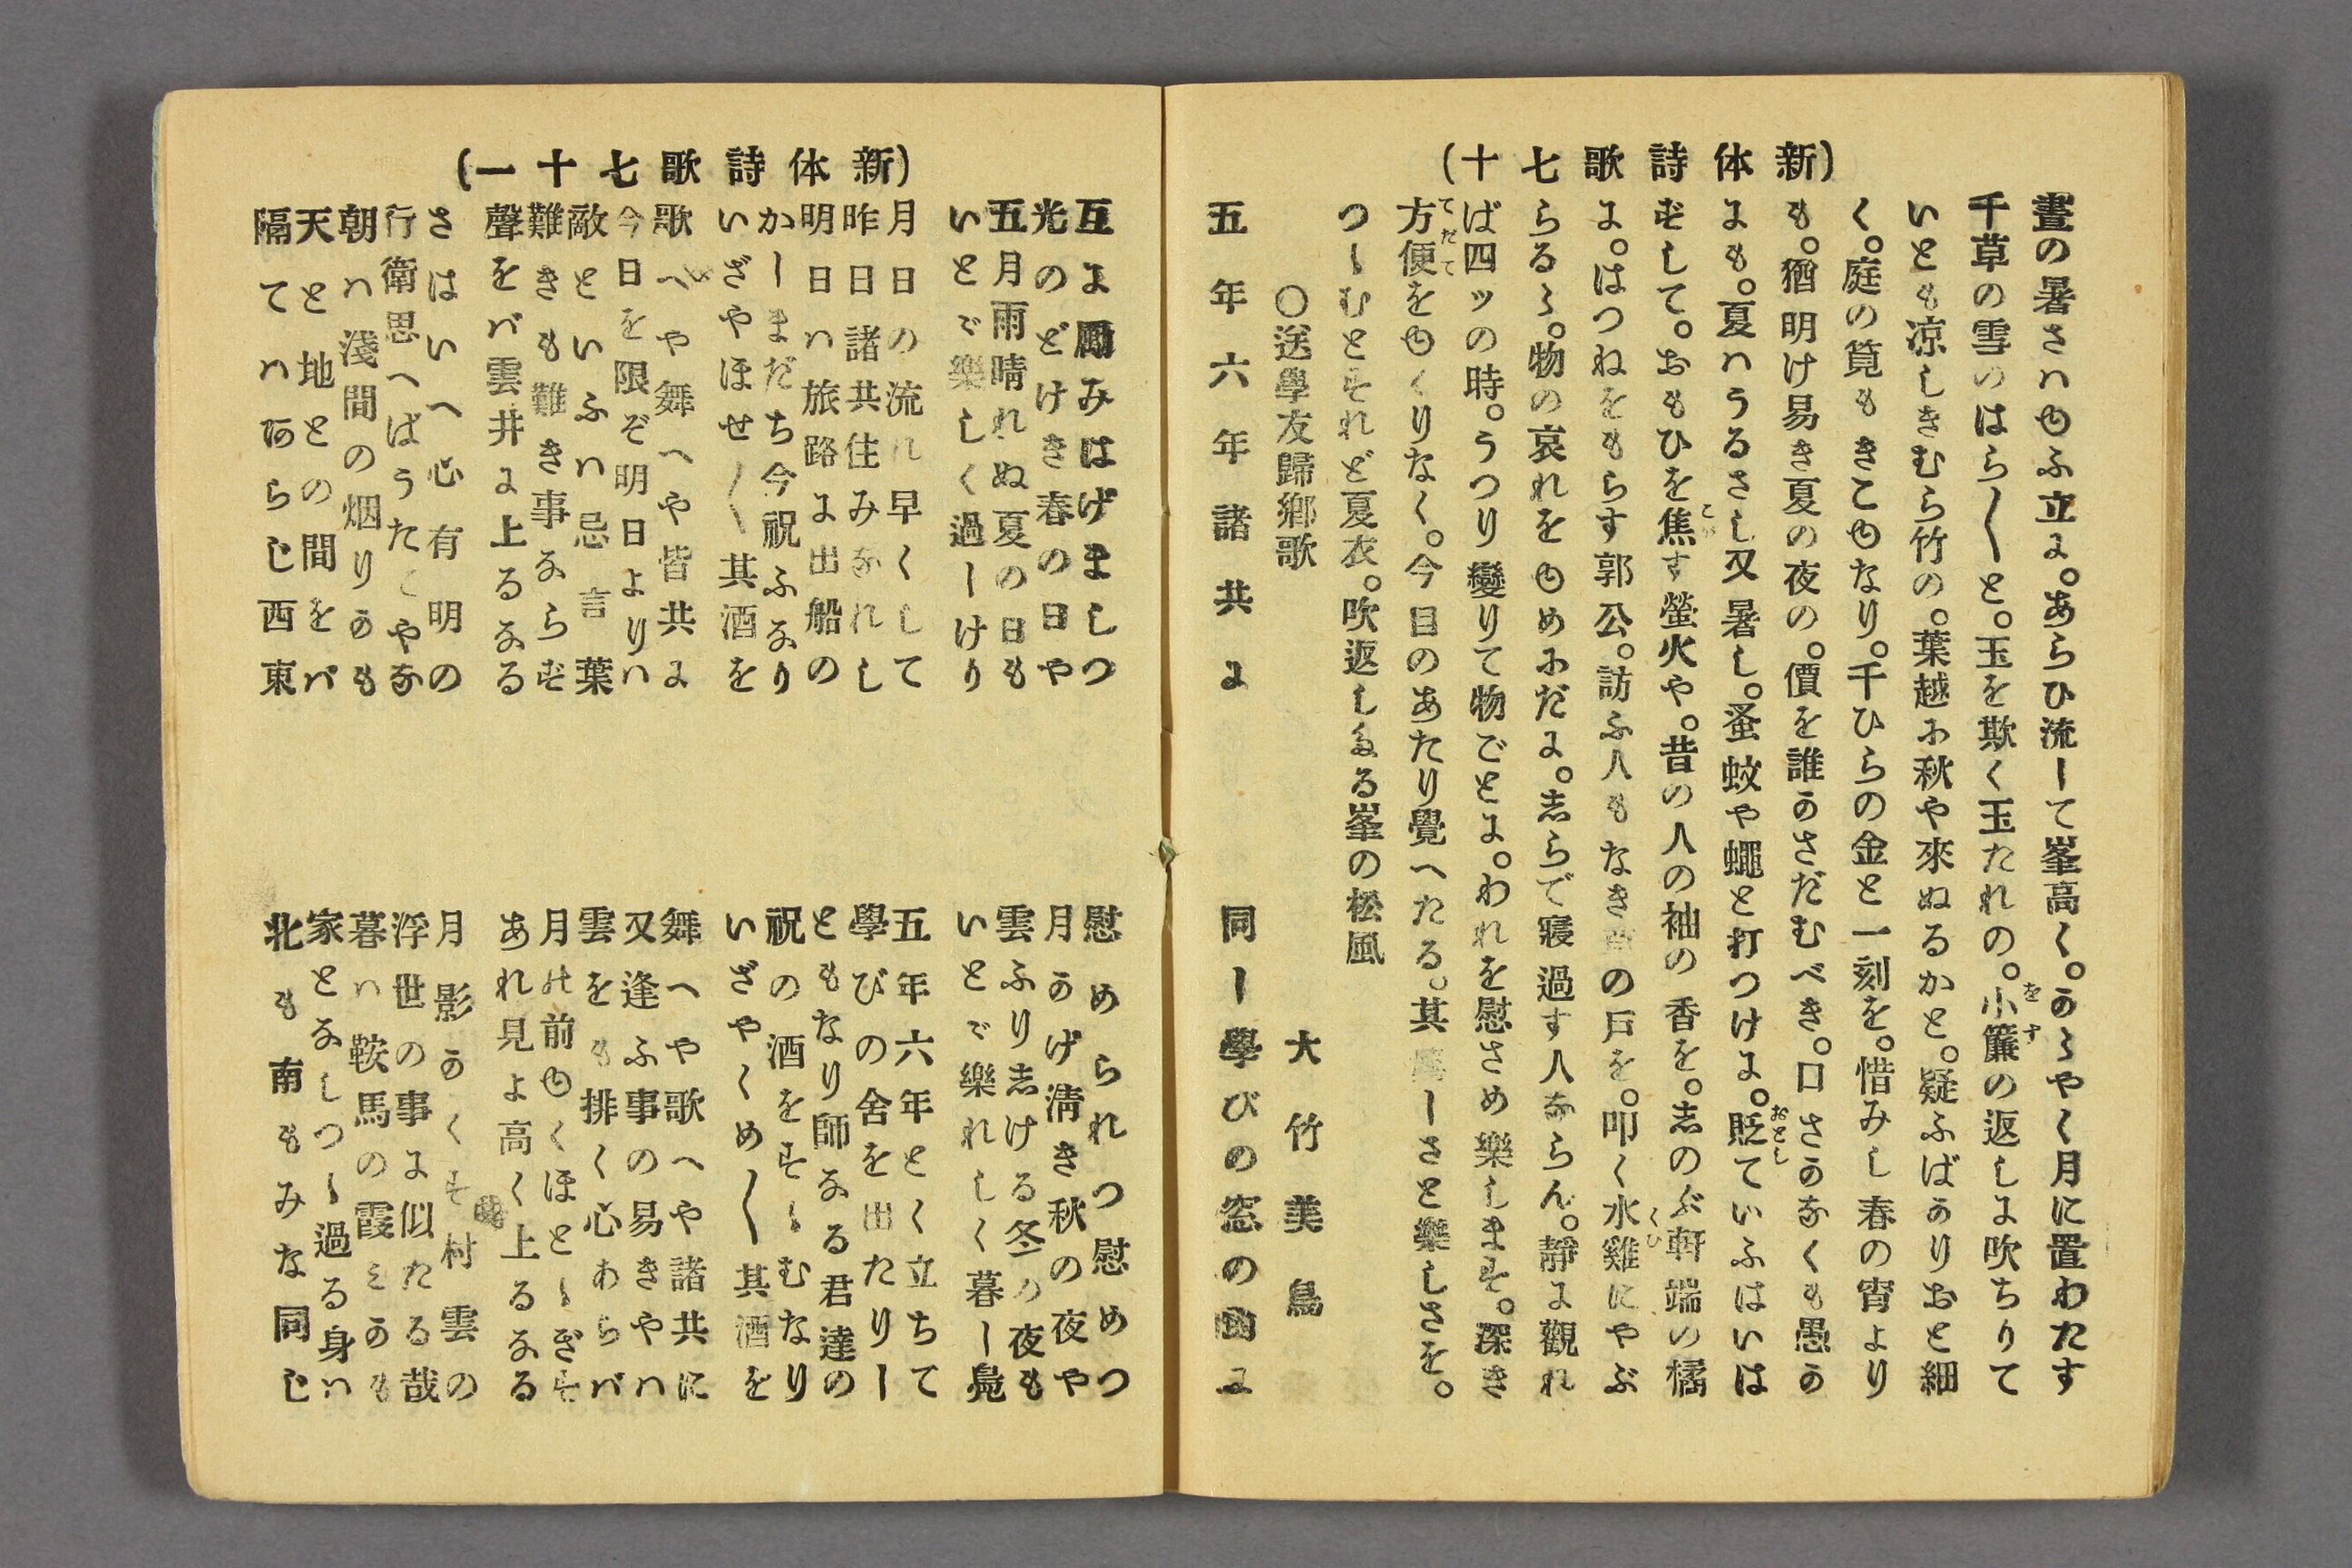 (新体詩歌七十)
晝の暑さハゆふ立に。あらひ流して峯高く。かゝやく月に置わたす
千草の雪のはら〳〵と。玉を欺く玉たれの。小簾の返しに吹ちりて
をす
いとも凉しきむら竹の。葉越に秋や來ぬるかと。疑ふばかりおと細
く。庭の筧もきこゆなり。千ひらの金と一刻を。惜みし春の宵より
も。猶明け易き夏の夜の。價を誰かさだむべき。口さかなくも愚か
にも。夏ハうるさし又暑し。蚤蚊や蠅と打つけに。貶ていふはいは
おとし
ずして。おもひを焦す螢火や。昔の人の袖の香を。志のぶ軒端の橘
に。はつねをもらす郭公。訪ふ人もなきの戸を。叩く水雞にやぶ
くひ
らるゝ。物の哀れをゆめにだに。志らで寢過す人ならん。靜に觀れ
ば四ッの時。うつり變りて物ごとに。われを慰さめ樂します。深き
方便をゆくりなく。今目のあたり覺へたる。其しさと樂しさを。
てだて
つゝむとすれど夏衣。吹返しぬる峯の松風
〇送學友歸鄕歌
大竹美鳥
五年六年諸共に
同じ學びの窓のに
(新体詩歌七十一)
互に勵みはげましつ
慰められつ慰めつ
光のどけき春の日や
月かげ淸き秋の夜や
五月雨晴れぬ夏の日も
雲ふり志ける冬の夜も
いとゞ樂しく過しけり
いとゞ樂れしく暮し鳧
月日の流れ早くして
五年六年とく立ちて
昨日諸共住みなれし
學びの舍を出たりし
明日ハ旅路に出船の
ともなり師なる君達の
かしまだち今祝ふなり
祝の酒をすゝむなり
いざやほせ〳〵其酒を
いざやくめ〳〵其酒を
歌へや舞へや皆共に
舞へや歌へや諸共に
今日を限ぞ明日よりハ
又逢ふ事の易きやハ
敵といふハ忌言葉
雲をも排く心あらバ
難きも難き事ならず
月の前ゆくほとゝぎす
聲をバ雲井に上るなる
あれ見よ高く上るなる
さはいへ心有明の
月影かくす村雲の
行衛思へばうたてやな
浮世の事に似たる哉
朝ハ淺間の烟りかも
暮ハ鞍馬の霞みかも
天と地との間をバ
家となしつゝ過る身ハ
隔てハあらじ西東
北も南もみな同じ